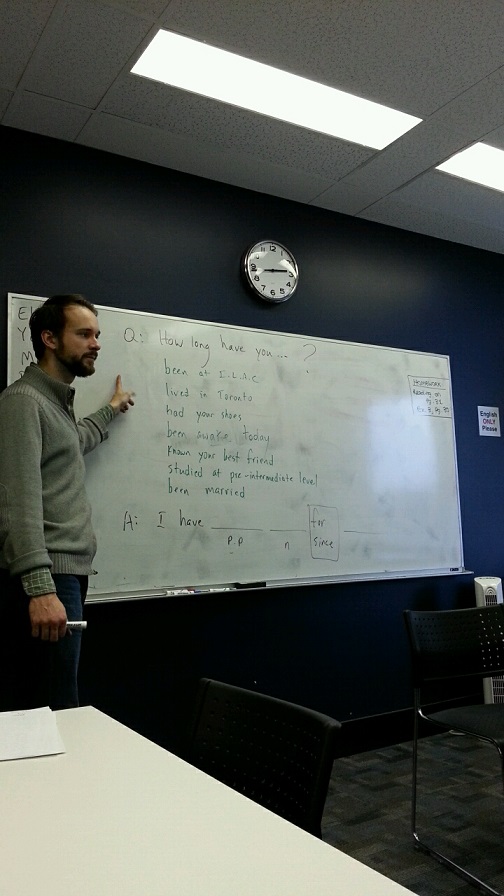 Q: How long have you ... ?
been at I.L.A.C
lived in Toronto
had your shoes
been awake today
known your best friend
studied at pre-intermediate level
been married
A: I have ___ ___ for ___
since
p.p n
Homework
Reading on
Pg. 31
English
ONLY
Please
9 10 11 12 1 2 3 4 5 6 7 8